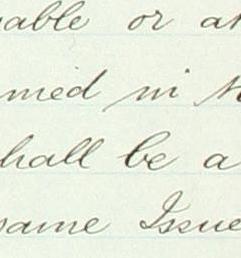 able or
med in
hall be a
same Issue